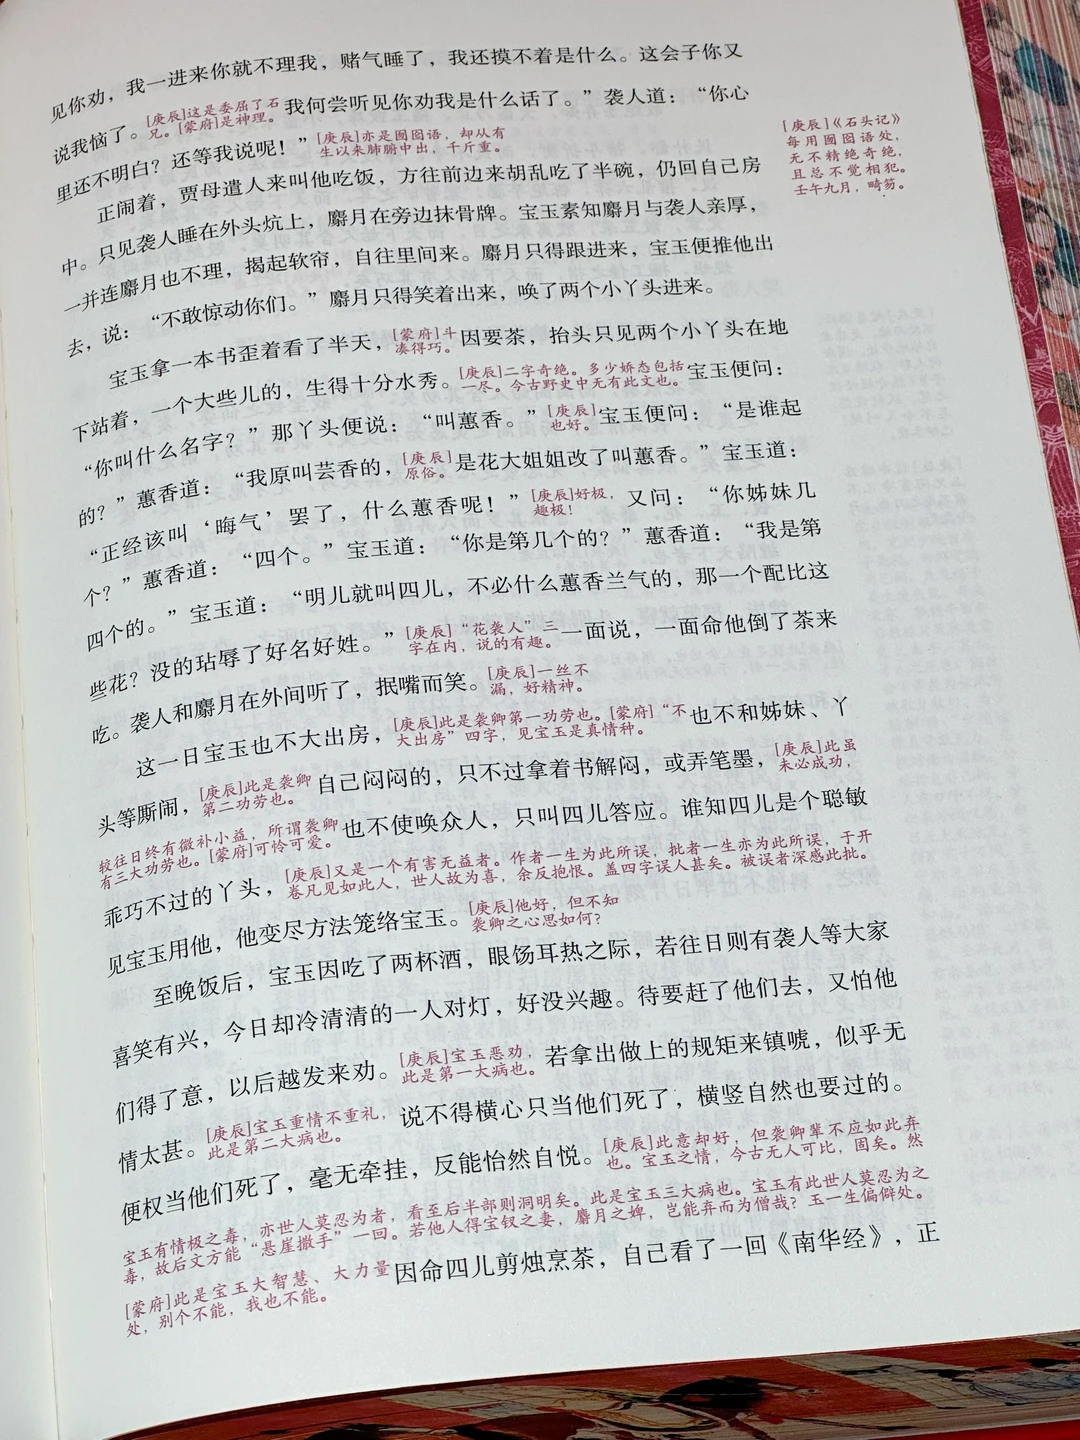 我一进来你就不理我，赌气睡了，我还摸不着是什么。这会子你又
见你劝，
说我恼了。[庚辰]这是委屈了石兄。[蒙府]是神理。我何尝听见你劝我是什么话了。”袭人道：“你心
里还不明白？还等我说呢！”[庚辰]亦是囫囵语，却从有生以来肺腑中出，千斤重。
[庚辰]《石头记》
每用囫囵语处，
无不精绝奇绝，
且总不觉相犯。
壬午九月，畸笏。
正闹着，贾母遣人来叫他吃饭，方往前边来胡乱吃了半碗，仍回自己房
中。只见袭人睡在外头炕上，麝月在旁边抹骨牌。宝玉素知麝月与袭人亲厚，
一并连麝月也不理，揭起软帘，自往里间来。麝月只得跟进来，宝玉便推他出
去，说：“不敢惊动你们。”麝月只得笑着出来，唤了两个小丫头进来。
宝玉拿一本书歪着看了半天，[蒙府]斗凑得巧。因要茶，抬头只见两个小丫头在地
下站着，一个大些儿的，生得十分水秀。[庚辰]二字奇绝。多少娇态包括一尽。今古野史中无有此文也。宝玉便问：
“你叫什么名字？”那丫头便说：“叫蕙香。”[庚辰]也好。宝玉便问：“是谁起
的？”蕙香道：“我原叫芸香的，[庚辰]原俗。是花大姐姐改了叫蕙香。”宝玉道：
“正经该叫‘晦气’罢了，什么蕙香呢！”[庚辰]好极，趣极！又问：“你姊妹几
个？”蕙香道：“四个。”宝玉道：“你是第几个的？”蕙香道：“我是第
四个的。”宝玉道：“明儿就叫四儿，不必什么蕙香兰气的，那一个配比这
些花？没的玷辱了好名好姓。”[庚辰]“花袭人”三字在内，说的有趣。一面说，一面命他倒了茶来
吃。袭人和麝月在外间听了，抿嘴而笑。[庚辰]一丝不漏，好精神。
这一日宝玉也不大出房，[庚辰]此是袭卿第一功劳也。[蒙府]“不大出房”四字，见宝玉是真情种。也不和姊妹、丫
头等厮闹，[庚辰]此是袭卿第二功劳也。自己闷闷的，只不过拿着书解闷，或弄笔墨，[庚辰]此虽未必成功，
较往日终有微补小益，所谓袭卿有三大功劳也。[蒙府]可怜可爱。也不使唤众人，只叫四儿答应。谁知四儿是个聪敏
乖巧不过的丫头，[庚辰]又是一个有害无益者。作者一生为此所误，批者一生亦为此所误，于开卷凡见如此人，世人故为喜，余反抱恨。盖四字误人甚矣。被误者深感此批。
见宝玉用他，他变尽方法笼络宝玉。[庚辰]他好，但不知袭卿之心思如何？
至晚饭后，宝玉因吃了两杯酒，眼饧耳热之际，若往日则有袭人等大家
喜笑有兴，今日却冷清清的一人对灯，好没兴趣。待要赶了他们去，又怕他
们得了意，以后越发来劝。[庚辰]宝玉恶劝，此是第一大病也。若拿出做上的规矩来镇唬，似乎无
情太甚。[庚辰]宝玉重情不重礼，此是第二大病也。说不得横心只当他们死了，横竖自然也要过的。
便权当他们死了，毫无牵挂，反能怡然自悦。[庚辰]此意却好，但袭卿辈不应如此弃也。宝玉之情，今古无人可比，固矣。然
宝玉有情极之毒，亦世人莫忍为者，看至后半部则洞明矣。此是宝玉三大病也。宝玉有此世人莫忍为之毒，故后文方能“悬崖撒手”一回。若他人得宝钗之妻，麝月之婢，岂能弃而为僧哉？玉一生偏僻处。
[蒙府]此是宝玉大智慧、大力量处，别个不能，我也不能。因命四儿剪烛烹茶，自己看了一回《南华经》，正